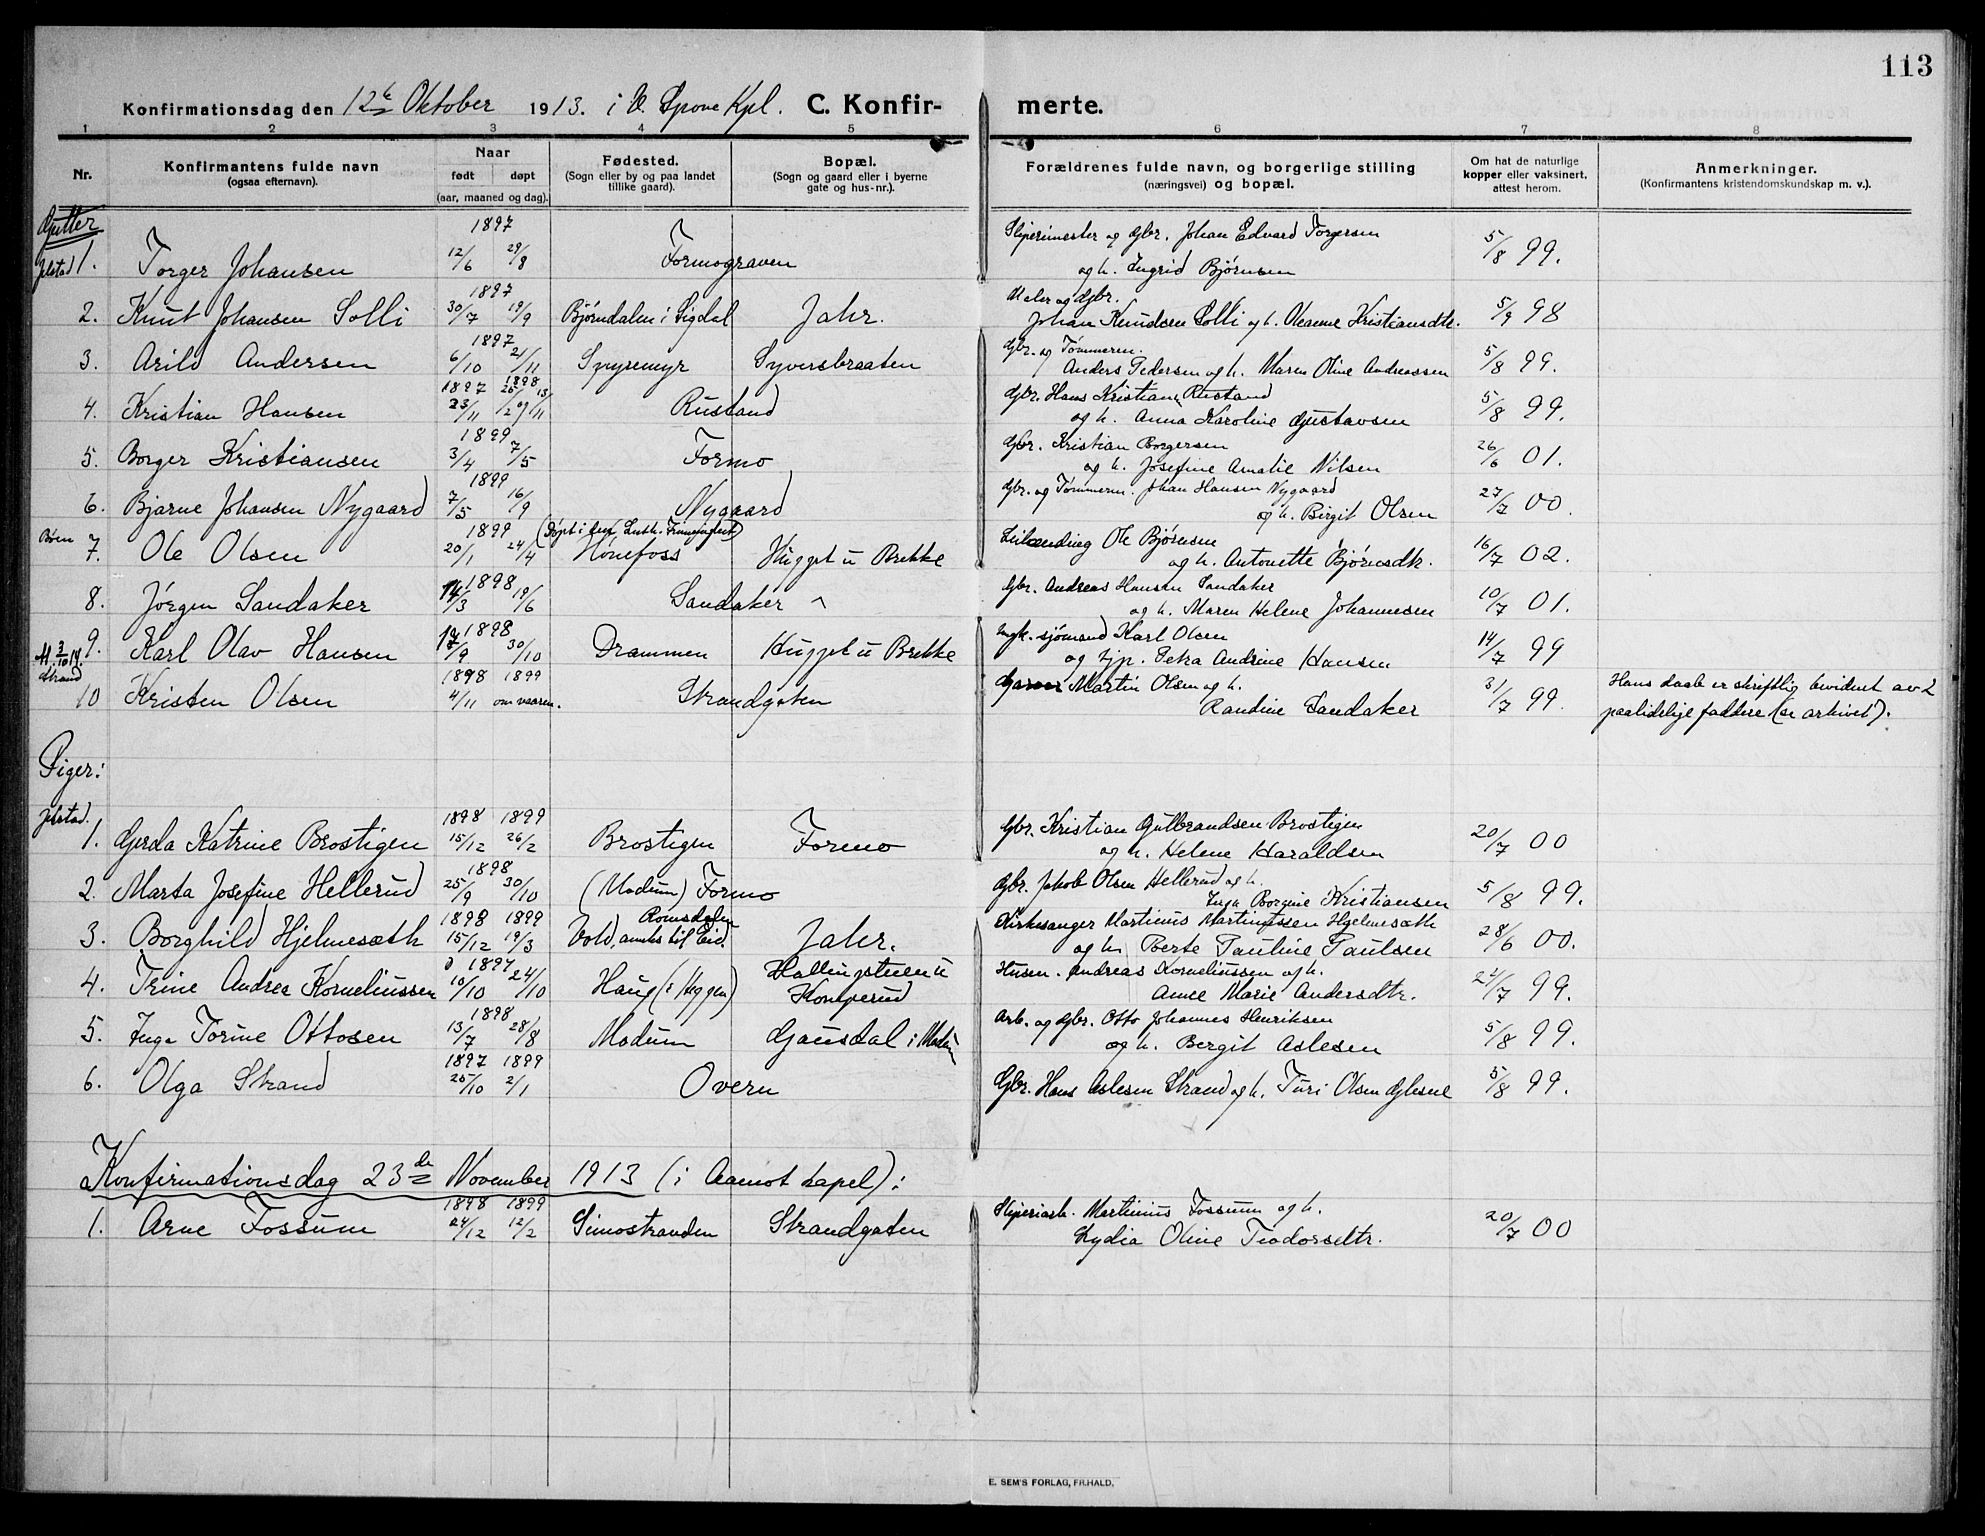 113
Konfirmationsdag den 12te Oktober 1913. i V. Spone Kpl. C. Konfir- merte.
1 2 3 4 5 6 7 8
Nr.
Konfirmantens fulde navn
(ogsaa efternavn).
Naar
født døpt
(aar, maaned og dag).
Fødested.
(Sogn eller by og paa landet
tillike gaard).
Bopæl.
(Sogn og gaard eller i byerne
gate og hus-nr.).
Forældrenes fulde navn, og borgerlige stilling
(næringsvei) og bopæl.
Om hat de naturlige
kopper eller vaksinert,
attest herom.
Anmerkninger.
(Konfirmantens kristendomskundskap m. v.).
Gutter
1897
Jelstad 1. Torger Johansen 12/6 29/8 Formograven
Johan Edvard Torgersen
og h. Ingrid Bjørnsen 5/8 99.
1897
2. Knut Johansen Solli 30/7 19/9 Bjørndalen i Sigdal Jahr.
Maler og Gbr.
Johan Knudsen Solli og h. Oleanne Kristiansdtr. 5/9 98
1897
3. Arild Andersen 6/10 21/11 Spyremyr Syversbraaten
Gbr. og Tømmerm.
Anders Pedersen og h. Maren Oline Andreassen 5/8 99.
1897 1898
4. Kristian Hansen 23/11 26/2 og 13/11 Rustand
Gbr. Hans Kristian Rustand
og h. Anna Karoline Gustavsen 5/8 99.
1899
5. Borger Kristiansen 3/4 7/5 Formo
Gbr. Kristian Borgersen
og h. Josefine Amalie Nilsen 26/6 01.
1899
6. Bjarne Johansen Nygaard 7/5 16/9 Nygaard
Gbr. og Tømmerm. Johan Hansen Nygaard
og h. Birgit Olsen 27/7 00.
1899 (Døpt i den Luth. Frimenighet)
7. Ole Olsen 20/1 24/4 Hønefoss Hugget u Brekke
Ole Bjørnsen
og h. Antonette Bjørnsdtr. 16/7 02.
1898
8. Jørgen Sandaker 14/3 19/6 Sandaker
Gbr. Andreas Hansen Sandaker
og h. Maren Helene Johannesen 10/7 01.
1898
9. Karl Olav Hansen 17/9 30/10 Drammen Hugget u Brekke
Ungk. sjømand Karl Olsen
og tjp. Petra Andrine Hansen 14/7 99
Strand
1898 1899
10 Kristen Olsen 4/11 om vaaren. Strandgaten
Garver Martin Olsen og h.
Randine Sandaker 31/7 99.
Hans daab er skriftlig bevidnet av 2
paalidelige faddere (se arkivet).
Piger:
Jelstad.
1898 1899
1. Gerda Katrine Brostigen 15/12 26/2 Brostigen Formo
Gbr. Kristian Gulbrandsen Brostigen
og h. Helene Haraldsen 20/7 00
1898
2. Marta Josefine Hellerud 25/9 30/10 (Modum) Formo
Gbr. Jakob Olsen Hellerud og h.
Inga Borgine Kristiansen 5/8 99.
1898 1899 Romsdalen
3. Borghild Hjelmesæth 15/12 19/3 Vold, anneks til Eid. Jahr.
Kirkesanger Martinus Martinussen Hjelmesæth
og h. Berte Pauline Paulsen 28/6 00.
1897
4. Trine Andrea Korneliussen 10/10 24/10 Haug (i Heggen) Hallingstuen u
Komperud
Husm. Andreas Korneliussen og h.
Anne Marie Andersdtr. 21/7 99.
1898
5. Inga Torine Ottosen 13/7 28/8 Modum Gausdal i Modum
Arb. og Gbr. Otto Johannes Henriksen
og h. Bergit Aslesen 5/8 99.
1897 1899
6. Olga Strand 25/10 2/1 Overn
Gbr. Hans Aslesen Strand og h. Turi Olsen Glesne 5/8 99.
Konfirmationsdag 23de November 1913 (i Aamot kapel):
1898 1899
1. Arne Fossum 24/12 12/2 Simostranden Strandgaten
Martinius Fossum og h.
Lydia Oline Teodorsdtr. 20/7 00
E. SEM'S FORLAG, FR.HALD.